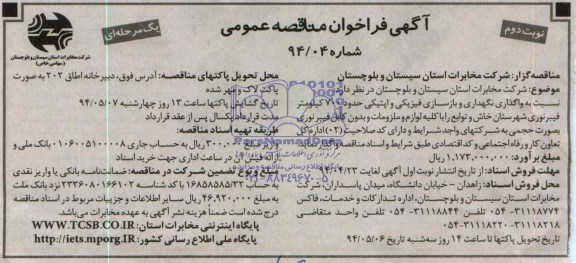 نوبت دوم
آگهی فراخوان مناقصه عمومی
شماره ۹۴/۰۴
یک مرحله‌ای
شرکت مخابرات استان سیستان و بلوچستان
(سهامی خاص)
مناقصه گزار: شرکت مخابرات استان سیستان و بلوچستان
موضوع: شرکت مخابرات استان سیستان و بلوچستان در نظر دارد
نسبت به واگذاری نگهداری و بازسازی فیزیکی و اپتیکی حدود ۷۰۰ کیلومتر
فیبرنوری شهرستان خاش و توابع را با کلیه لوازم و ملزومات و بدون کابل فیبر نوری
بصورت حجمی به شرکتهای واجد شرایط و دارای کد صلاحیت (۰۲) اداره کل
تعاون کار و رفاه اجتماعی و کد اقتصادی طبق شرایط و اسناد مناقصه واگذار نماید
مبلغ برآورد: ۱,۱۷۳,۰۰۰,۰۰۰ ریال
مهلت فروش اسناد: از تاریخ انتشار نوبت اول آگهی لغایت ۹۴/۰۴/۲۳
محل فروش اسناد: زاهدان – خیابان دانشگاه، میدان پاسداران، شرکت
مخابرات استان سیستان و بلوچستان، اداره تدارکات و خدمات، فاکس
۳۱۱۱۸۷۷۴-۰۵۴ تلفن ۳۱۱۱۸۸۴۴-۰۵۴ تلفن واحد متقاضی
۳۱۱۱۸۲۱۸-۰۵۴ ۳۱۱۱۸۲۲۰-۰۵۴
تاریخ تحویل پاکتها تا ساعت ۱۴ روز سه‌شنبه تاریخ ۹۴/۰۵/۰۶
محل تحویل پاکتهای مناقصه: آدرس فوق، دبیرخانه اطاق ۲۰۲ به صورت
پاکت لاک و مهر شده
تاریخ گشایش پاکتها ساعت ۱۳ روز چهارشنبه ۹۴/۰۵/۰۷
مدت قرارداد یکسال پس از عقد قرارداد
طریقه تهیه اسناد مناقصه:
واریز مبلغ ۳۰۰,۰۰۰ ریال به حساب جاری ۰۱۰۶۰۰۵۱۰۰۰۰۸ بانک ملی و
ارائه فیش آن در ساعات اداری جهت خرید اسناد
مبلغ و نوع تضمین شرکت در مناقصه: ضمانتنامه بانکی یا واریز نقدی
به حساب ۱۶۸۵۸۵۸۵/۳۲ با کد شناسه ۲۳۳۶۰۸۰۱۶۶۱۰۲ نزد بانک ملت
به مبلغ ۴۶,۹۲۰,۰۰۰ ریال سایر اطلاعات و جزییات مربوط در اسناد مناقصه
درج شده است ضمناً هزینه نشر آگهی به عهده مخابرات می باشد.
پایگاه اینترنتی مخابرات استان: WWW.TCSB.CO.IR
پایگاه ملی اطلاع رسانی کشور: http://iets.mporg.IR
ParsNamadData